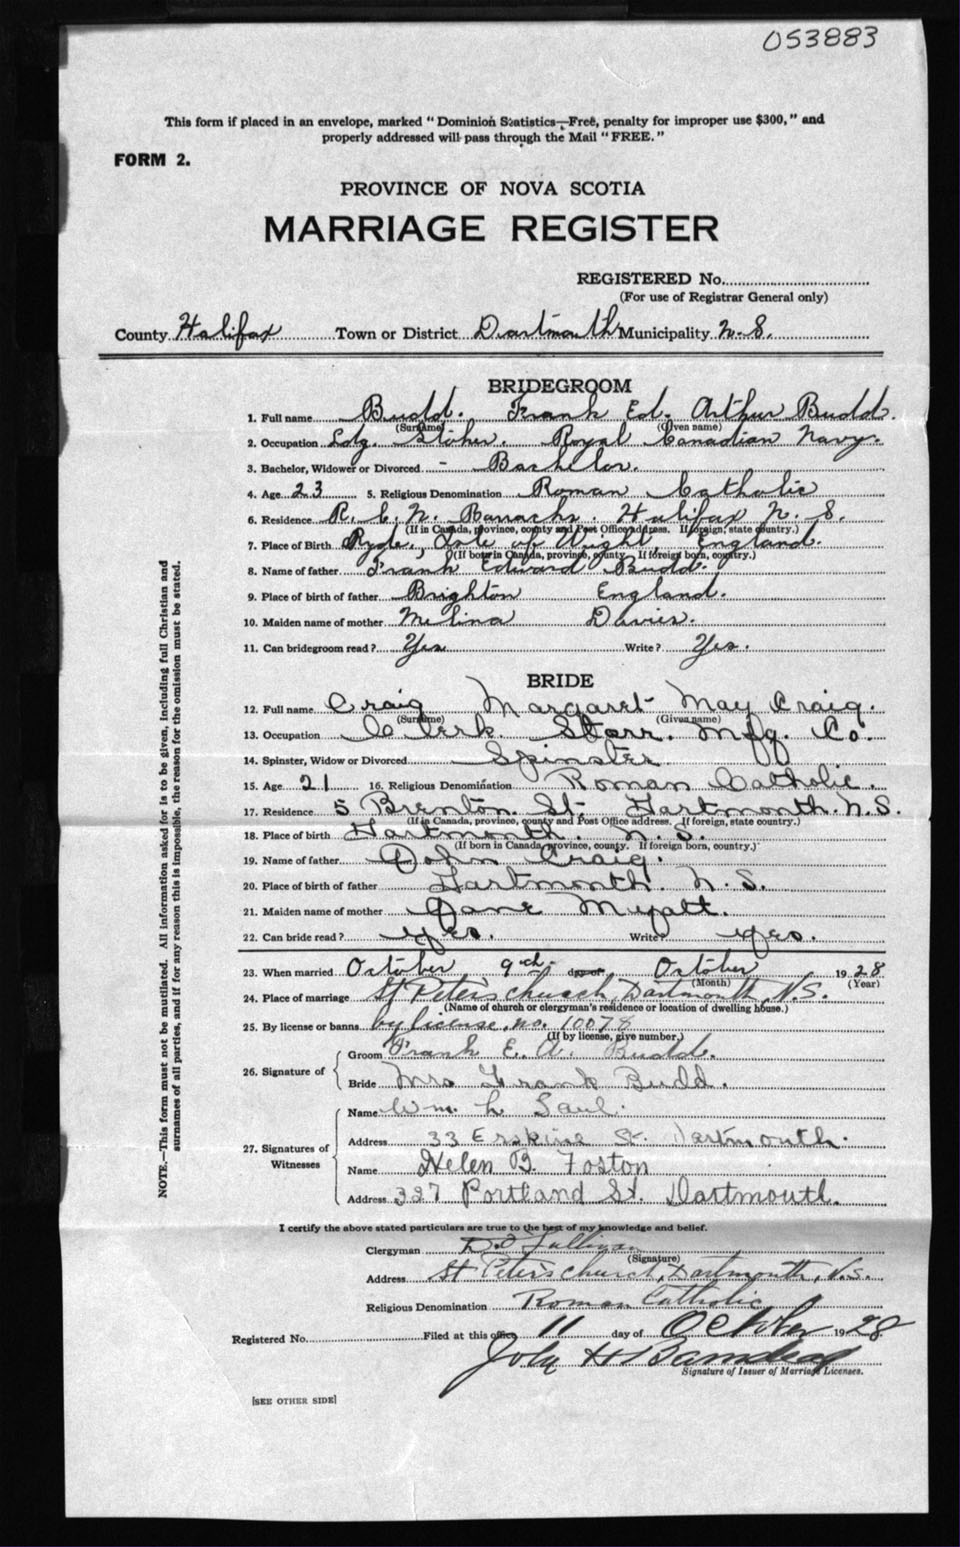 053883
This form if placed in an envelope, marked "Dominion Statistics—Free, penalty for improper use $300," and
properly addressed will pass through the Mail "FREE."
FORM 2.
PROVINCE OF NOVA SCOTIA
MARRIAGE REGISTER
REGISTERED No.
(For use of Registrar General only)
County Halifax Town or District Dartmouth Municipality N.S.
BRIDEGROOM
1. Full name Budd. Frank Ed. Arthur Budd.
(Surname) (Given name)
2. Occupation Ldg. Stoker. Royal Canadian Navy.
3. Bachelor, Widower or Divorced - Bachelor.
4. Age 23 5. Religious Denomination Roman Catholic
6. Residence R. C. N. Barracks. Halifax N. S.
(If in Canada, province, county and Post Office address. If foreign, state country.)
7. Place of Birth Ryde, Isle of Wight England.
(If born in Canada, province, county. If foreign born, country.)
8. Name of father Frank Edward Budd.
9. Place of birth of father Brighton England.
10. Maiden name of mother Melina Davies.
11. Can bridegroom read? Yes Write? Yes.
BRIDE
12. Full name Craig Margaret May Craig.
(Surname) (Given name)
13. Occupation Clerk Starr. Mfg. Co.
14. Spinster, Widow or Divorced Spinster
15. Age 21 16. Religious Denomination Roman Catholic.
17. Residence 5 Brenton St. Dartmouth. N.S.
(If in Canada, province, county and Post Office address. If foreign, state country.)
18. Place of birth Dartmouth. N.S.
(If born in Canada, province, county. If foreign born, country.)
19. Name of father John Craig.
20. Place of birth of father Dartmouth. N.S.
21. Maiden name of mother Jane Myatt.
22. Can bride read? Yes. Write? Yes.
23. When married October 9th day of October 1928
(Month) (Year)
24. Place of marriage St Peter's Church, Dartmouth, N.S.
(Name of church or clergyman's residence or location of dwelling house.)
25. By license or banns by license no. 10078
(If by license, give number.)
26. Signature of
Groom Frank E. A. Budd.
Bride Mrs Frank Budd.
27. Signatures of Witnesses
Name Wm. L. Saul.
Address 33 Erskine St. Dartmouth.
Name Helen B. Foston
Address 327 Portland St. Dartmouth.
NOTE.—This form must not be mutilated. All information asked for is to be given, including full Christian and
surnames of all parties, and if for any reason this is impossible, the reason for the omission must be stated.
I certify the above stated particulars are true to the best of my knowledge and belief.
Clergyman Sullivan
(Signature)
Address St Peter's Church, Dartmouth, N.S.
Religious Denomination Roman Catholic
Registered No. Filed at this office 11 day of October 1928
John H
Signature of Issuer of Marriage Licenses.
[SEE OTHER SIDE]